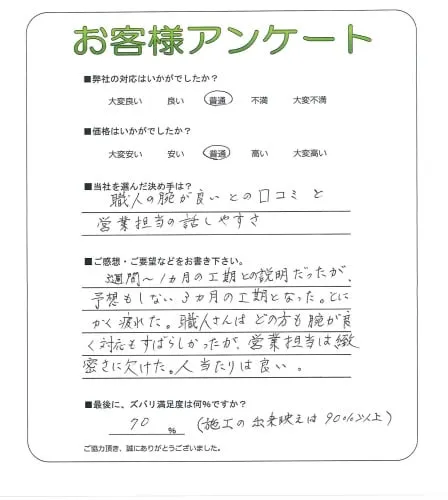 お客様アンケート
■弊社の対応はいかがでしたか？
大変良い 良い 普通 不満 大変不満
■価格はいかがでしたか？
大変安い 安い 普通 高い 大変高い
■当社を選んだ決め手は？
職人の腕が良いとの口コミと
営業担当の話しやすさ
■ご感想・ご要望などをお書き下さい。
週間～1カ月の工期との説明だったが、
予想もしない3カ月の工期となった。とに
かく疲れた。職人さんはどの方も腕が良
く対応もすばらしかったが、営業担当は緻
密さに欠けた。人当たりは良い。
■最後に、ズバリ満足度は何%ですか？
70 % (施工の出来映えは90%以上)
ご協力頂き、誠にありがとうございました。